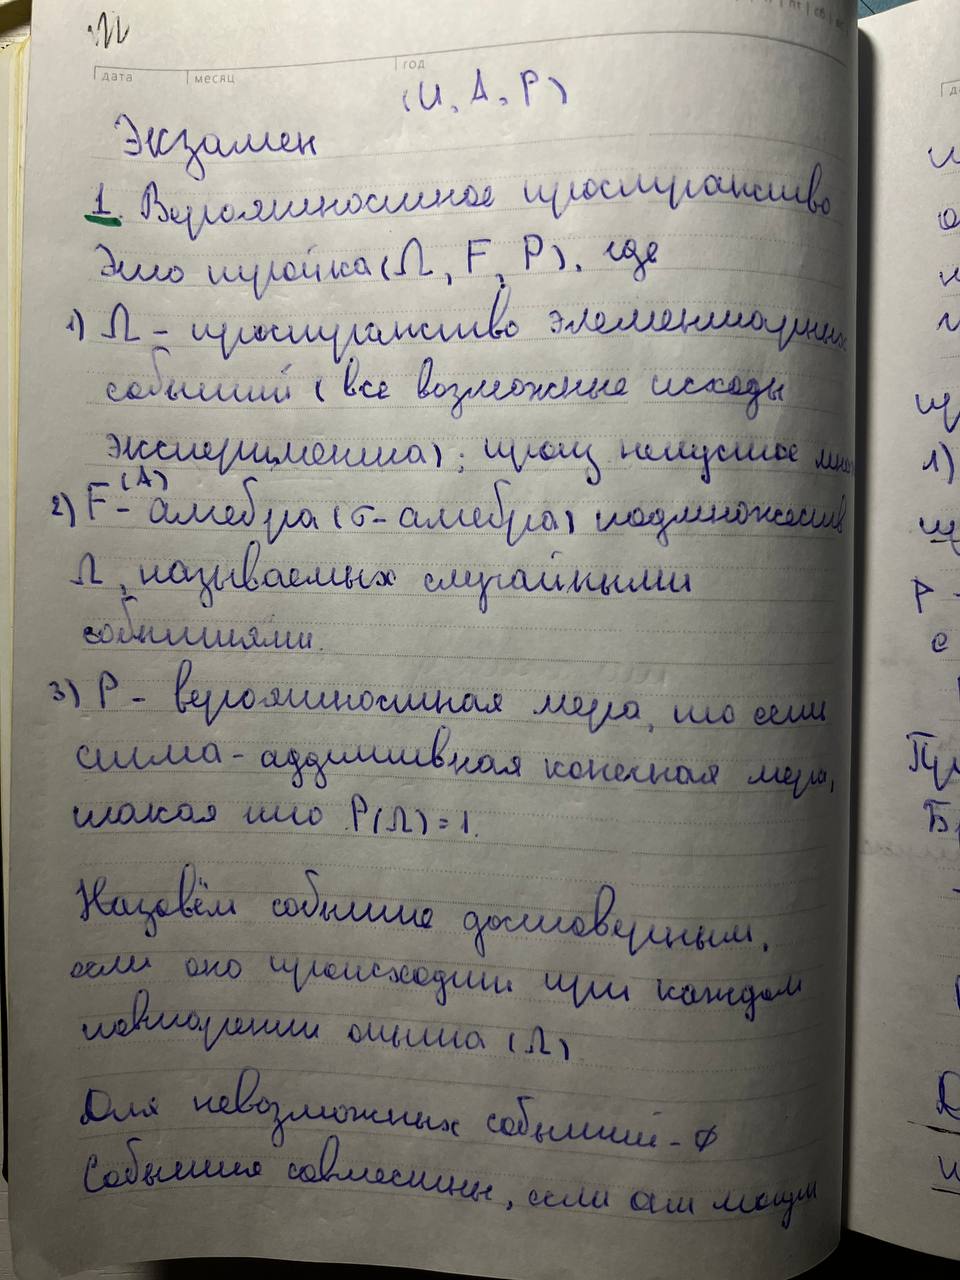 дата месяц год
(U, A, P)
Экзамен
1. Вероятностное пространство
Это тройка (Ω, F, P), где
1) Ω - пространство элементарных
событий (все возможные исходы
эксперимента); произ непустое мно
(A)
2) F - алгебра (σ-алгебра) подмножеств
Ω, называемых случайными
событиями.
3) P - вероятностная мера, то есть
сигма-аддитивная конечная мера,
такая что P(Ω)=1.
Назовём событие достоверным,
если оно происходит при каждом
повторении опыта (Ω)
Для невозможных событий - ∅
События совместны, если они могут